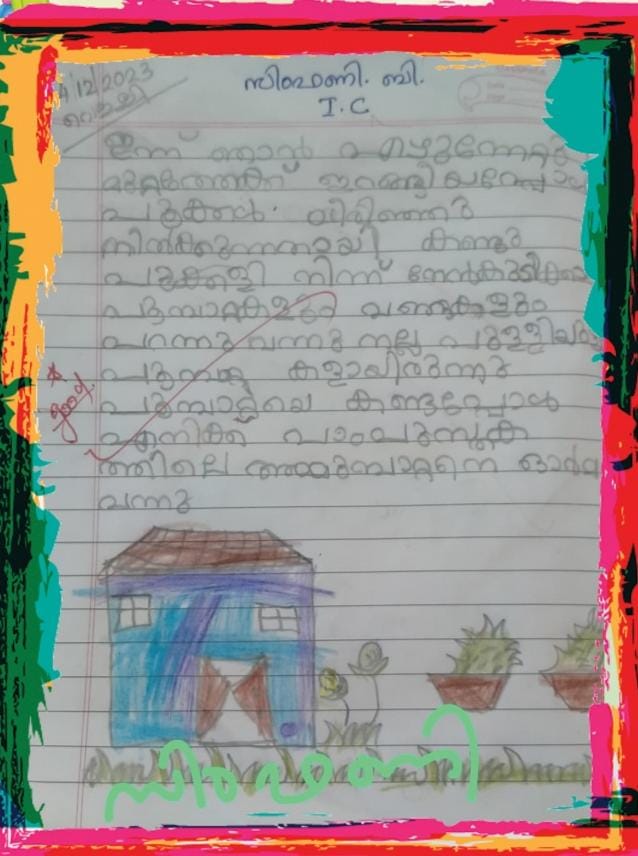 4/12/2023
സിഫാണി. ബി.
I. C
ഇന്ന് ഞാൻ എഴുന്നേറ്റു
മുറ്റത്തേക്ക് ഇറങ്ങിയപ്പോൾ
പൂക്കൾ വിരിഞ്ഞു
നിൽക്കുന്നതായി കണ്ടു
പൂക്കളി നിന്ന് തേൻകുടിക്കാ
പൂമ്പാറ്റകളും വണ്ടുകളും
പറന്നു വന്നു നല്ല പുള്ളിയു
കളായിരുന്നു
പൂമ്പാറ്റയെ കണ്ടപ്പോൾ
എനിക്ക് പാഠപുസ്തക
ത്തിലെ ഓർമ
വന്നു
good